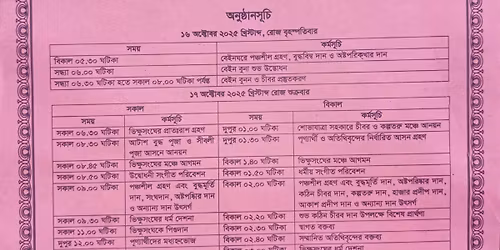 অনুষ্ঠানসূচি
১৬ অক্টোবর ২০২৫ খ্রিস্টাব্দ, রোজ বৃহস্পতিবার
সময় কর্মসূচি
বিকাল ০৫.৩০ ঘটিকা বেইনঘরে পঞ্চশীল গ্রহণ, বুদ্ধবিম্ব দান ও অষ্টপরিষ্কার দান
সন্ধ্যা ০৬.০০ ঘটিকা বেইন বুনা শুভ উদ্বোধন
সন্ধ্যা ০৬.৩০ ঘটিকা হতে সকাল ০৮.০০ ঘটিকা পর্যন্ত বেইন বুনন ও চীবর প্রস্তুতকরণ
১৭ অক্টোবর ২০২৫ খ্রিস্টাব্দ রোজ শুক্রবার
সকাল বিকাল
সময় কর্মসূচি সময় কর্মসূচি
সকাল ০৬.৩০ ঘটিকা ভিক্ষুসংঘের প্রাতরাশ গ্রহণ দুপুর ০১.০০ ঘটিকা শোভাযাত্রা সহকারে চীবর ও কল্পতরু মঞ্চে আনয়ন
সকাল ০৮.৩০ ঘটিকা আটাশ বুদ্ধ পূজা ও সীবলী দুপুর ০১.৩০ ঘটিকা পুণ্যার্থী ও অতিথিবৃন্দের নির্ধারিত আসন গ্রহণ
পূজা আসনে আনয়ন
সকাল ০৮.৪৫ ঘটিকা ভিক্ষুসংঘের মঞ্চে আগমন বিকাল ১.৪০ ঘটিকা ভিক্ষুসংঘের মঞ্চে আগমন
সকাল ০৮.৫০ ঘটিকা উদ্বোধনী সংগীত পরিবেশন বিকাল ০১.৫০ ঘটিকা ধর্মীয় সংগীত পরিবেশন
সকাল ০৯.০০ ঘটিকা পঞ্চশীল গ্রহণ এবং বুদ্ধমূর্তি বিকাল ০২.০০ ঘটিকা পঞ্চশীল গ্রহণ এবং বুদ্ধমূর্তি দান, অষ্টপরিষ্কার দান,
দান, সংঘদান, অষ্টপরিষ্কার দান কঠিন চীবর দান, কল্পতরু দান, হাজার প্রদীপ দান,
ও অন্যান্য দান উৎসর্গ আকাশ প্রদীপ দান ও অন্যান্য দান উৎসর্গ
সকাল ০৯.৩০ ঘটিকা ভিক্ষুসংঘের ধর্ম দেশনা বিকাল ০২.২০ ঘটিকা শুভ কঠিন চীবর দান উপলক্ষে বিশেষ প্রার্থণা
সকাল ১১.০০ ঘটিকা ভিক্ষুসংঘকে পিণ্ডদান বিকাল ০২.৩০ ঘটিকা স্বাগত বক্তব্য
দুপুর ১২.০০ ঘটিকা পুণ্যার্থীদের মধ্যাহ্নভোজ বিকাল ০২.৪০ ঘটিকা সম্মানিত অতিথিবৃন্দের বক্তব্য